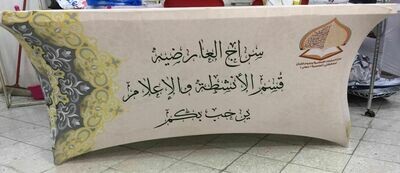 سراج العارضية
قسم الأنشطة والإعلام
يرحب بكم